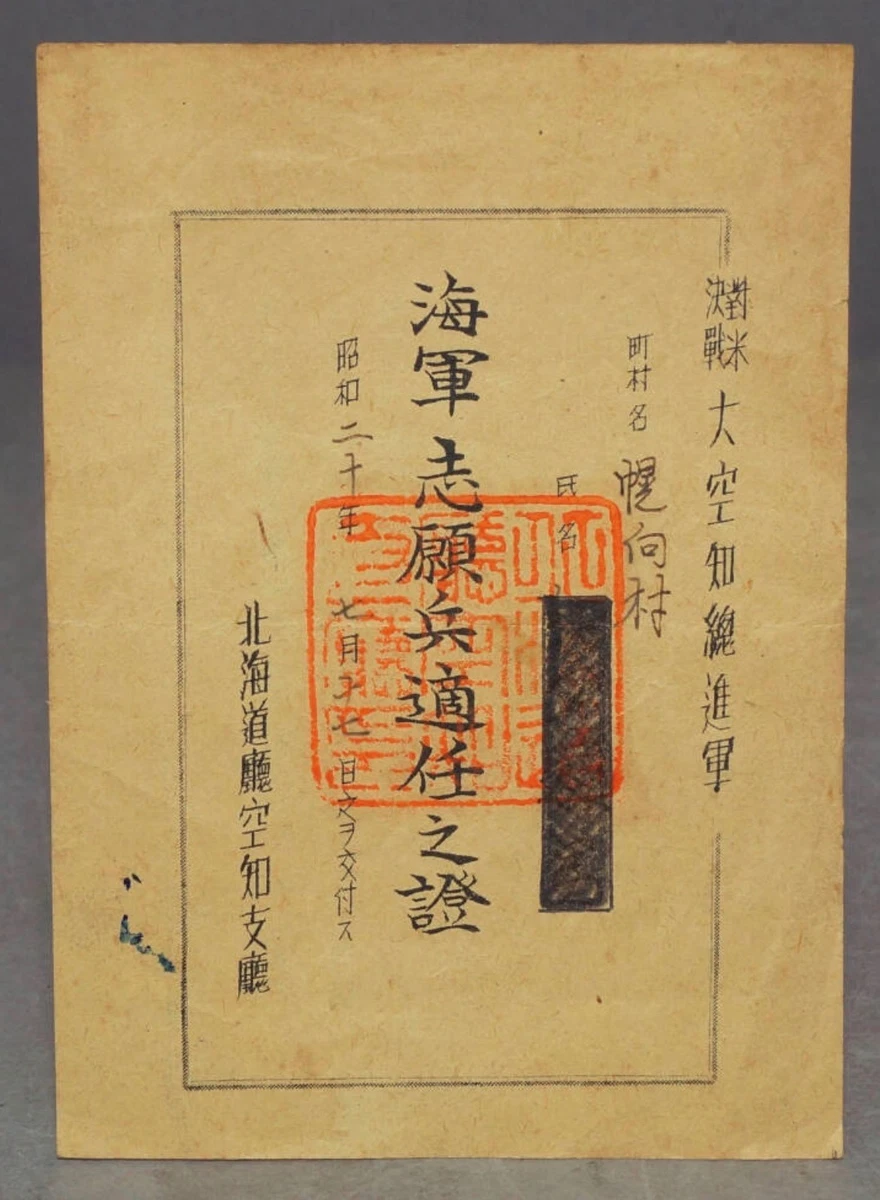 對米決戰 大空知總進軍
町村名 幌向村
氏名
海軍志願兵適任之證
昭和二十年 七月二十七日之ヲ交付ス
北海道廳空知支廳